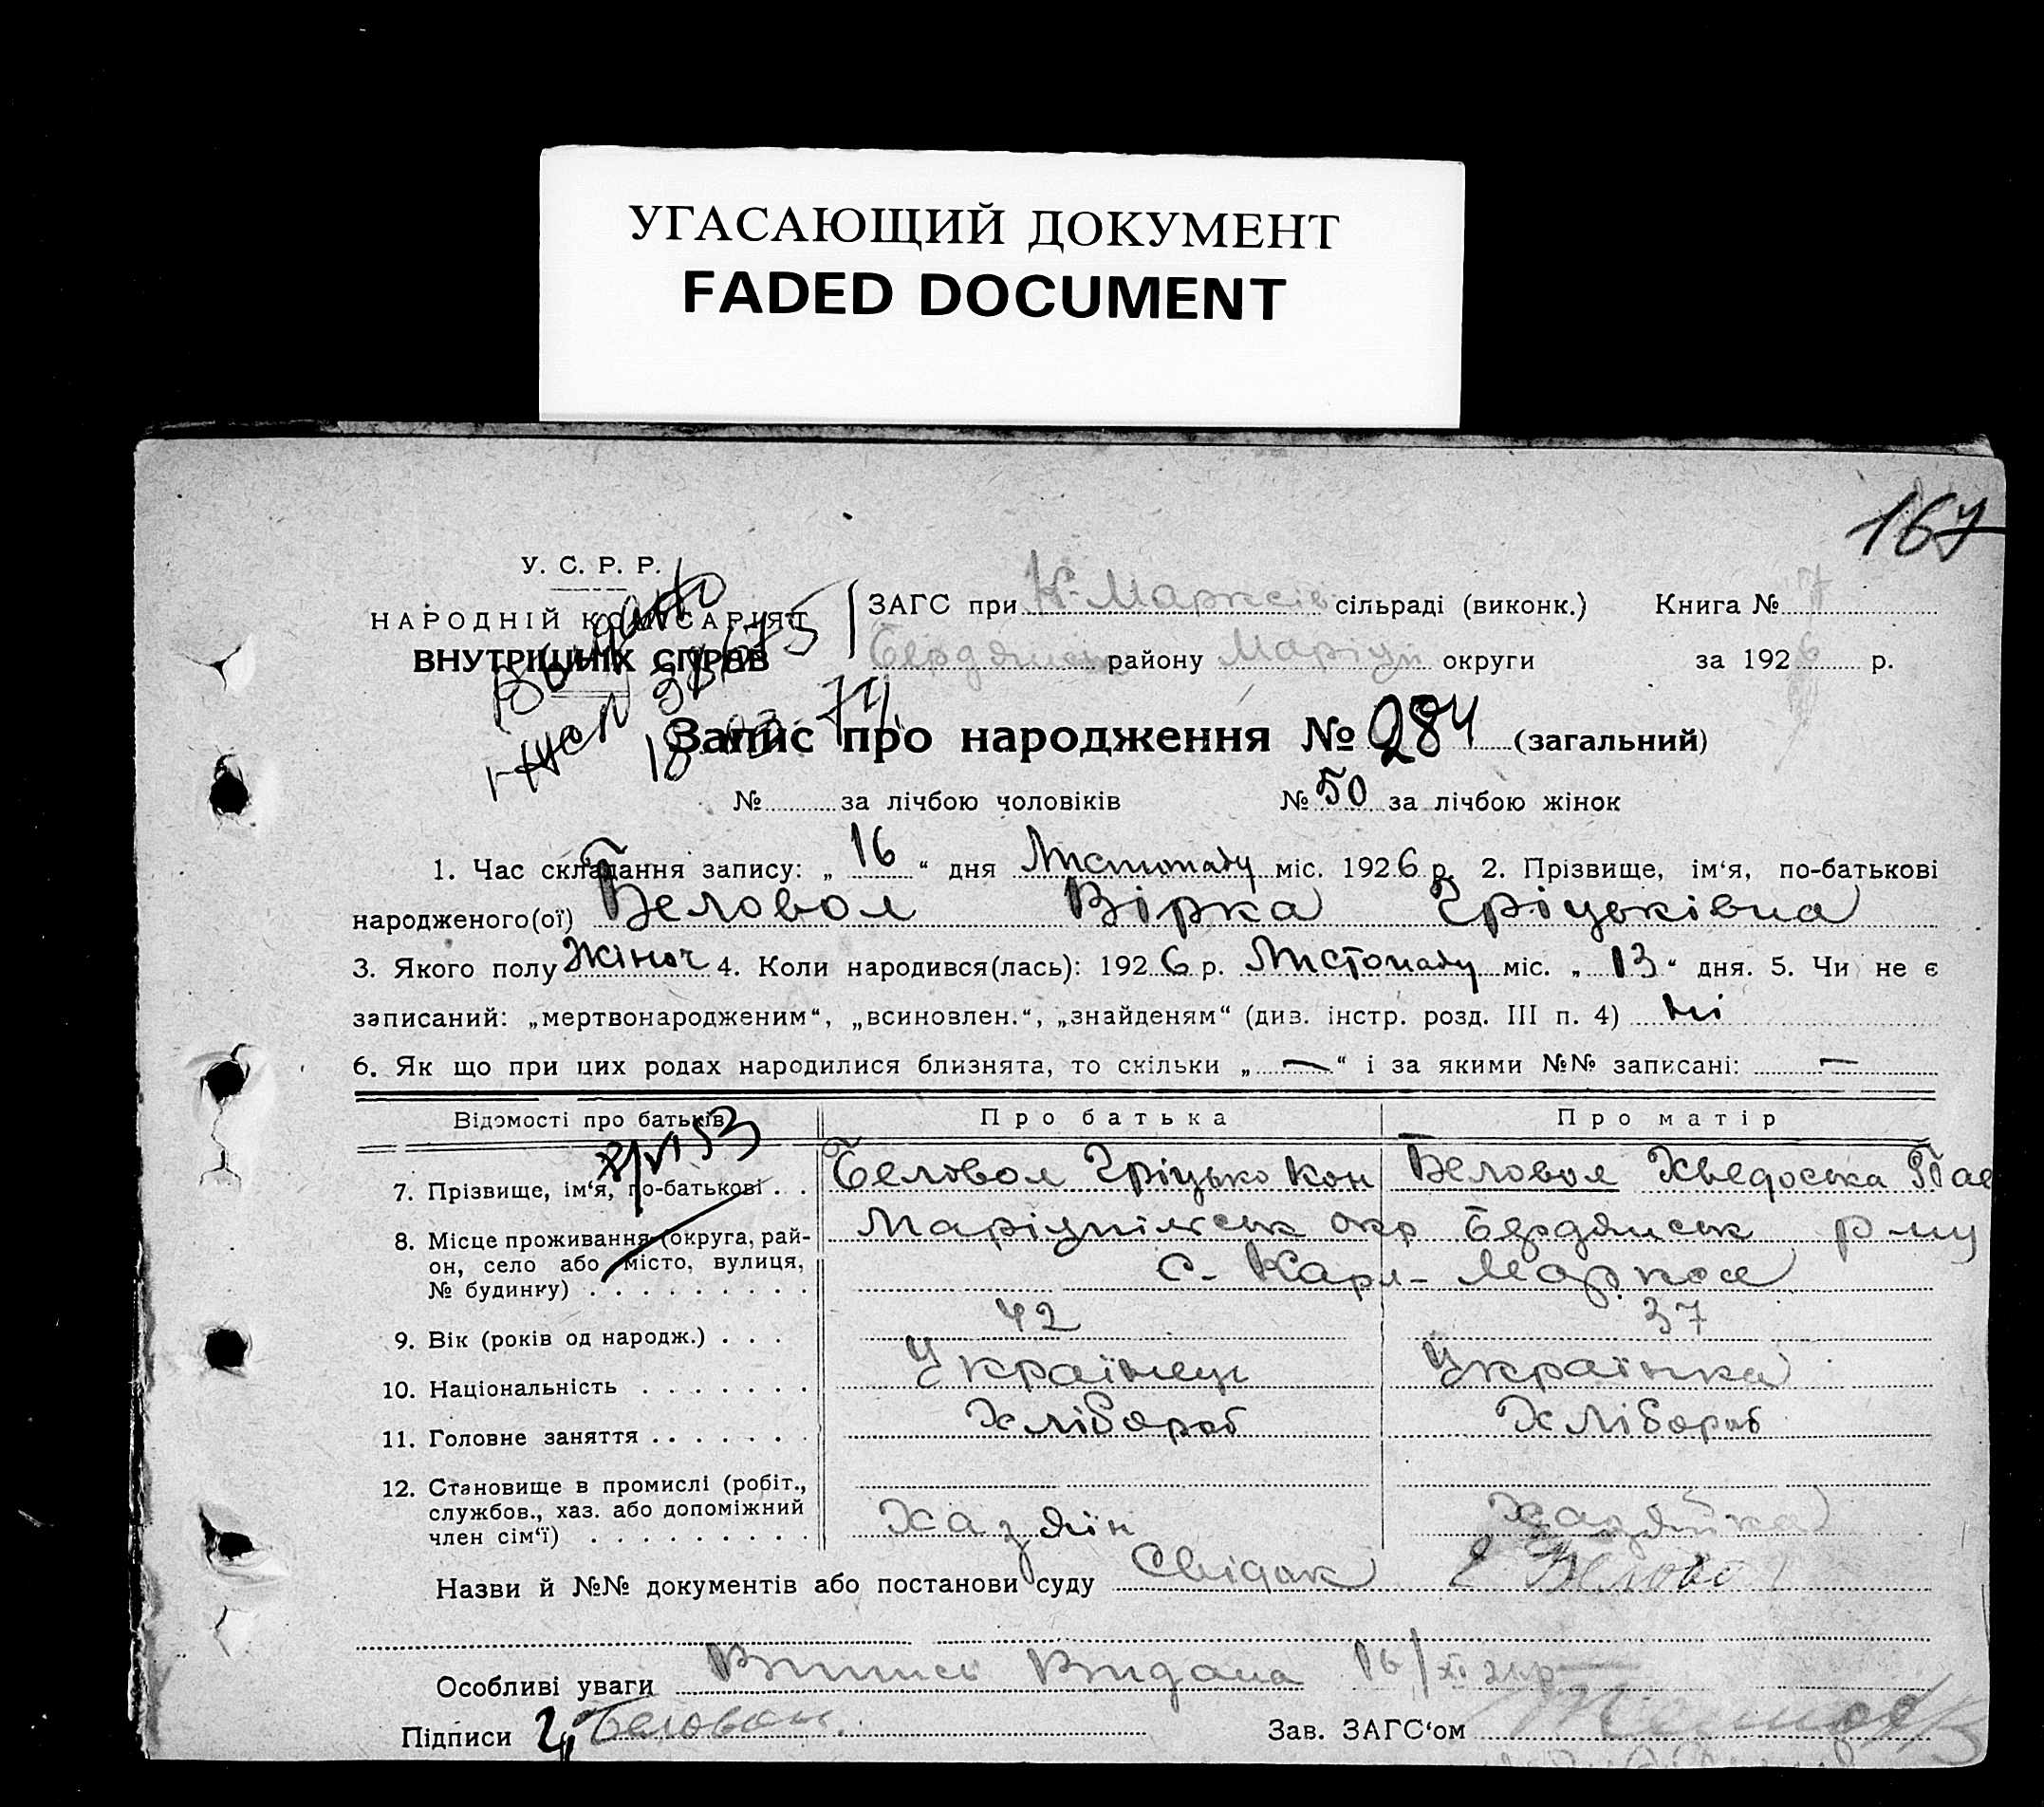 УГАСАЮЩИЙ ДОКУМЕНТ
FADED DOCUMENT
167
У. С. Р. Р.
НАРОДНІЙ КОМІСАРІЯТ
ВНУТРІШНІХ СПРАВ
ЗАГС при К-Марксів сільраді (виконк.) Книга № 7
Бердянськ району Маріуп округи за 1926 р.
Запис про народження № 284 (загальний)
№ за лічбою чоловіків № 50 за лічбою жінок
1. Час складання запису: „ 16 “ дня Листопаду міс. 1926 р. 2. Прізвище, ім‘я, по-батькові
народженого(ої) Беловол Вірка Гріцьківна
3. Якого полу Жіноч 4. Коли народився(лась): 1926 р. Листопаду міс. „ 13 “ дня. 5. Чи не є
записаний: „мертвонародженим“, „всиновлен.“, „знайденям“ (див. інстр. розд. III п. 4) ні
6. Як що при цих родах народилися близнята, то скільки „ — “ і за якими №№ записані: —
Відомості про батьків Про батька Про матір
7. Прізвище, ім‘я, по-батькові . . Беловол Гріцько Кон Беловол Хведоська Пав
8. Місце проживання (округа, рай- Маріупільськ окр Бердянськ р-ну
он, село або місто, вулиця, с. Карл-Маркса
№ будинку) . . . . . . . . .
9. Вік (років од народж.) . . . 42 37
10. Національність . . . . . . . Українець Українка
11. Головне заняття . . . . . . . Хлібороб Хлібороб
12. Становище в промислі (робіт.,
службов., хаз. або допоміжний
член сім‘ї) . . . . . . . . . Хазяїн Хазяйка
Назви й №№ документів або постанови суду Свідок
Особливі уваги Випись Видана 16/XI 26р
Підписи Г. Беловол Зав. ЗАГС‘ом